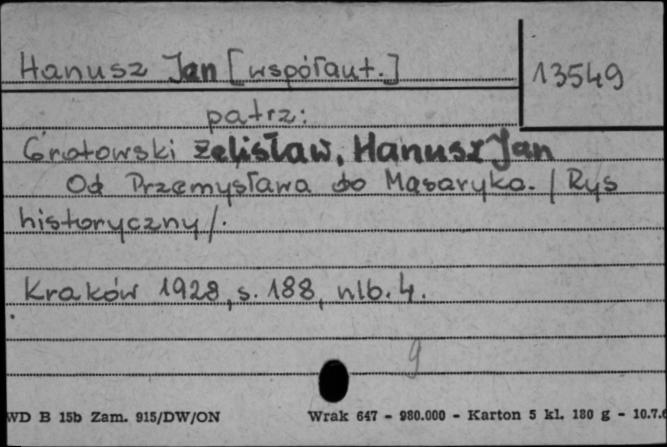 Hanusz Jan [współaut.]
13549
patrz:
Grotowski Żelisław, Hanusz Jan
Od Przemysława do Masaryka. / Rys
historyczny/.
Kraków 1928, s. 188, nlb. 4.
9
WD B 15b Zam. 915/DW/ON
Wrak 647 - 980.000 - Karton 5 kl. 180 g - 10.7.6